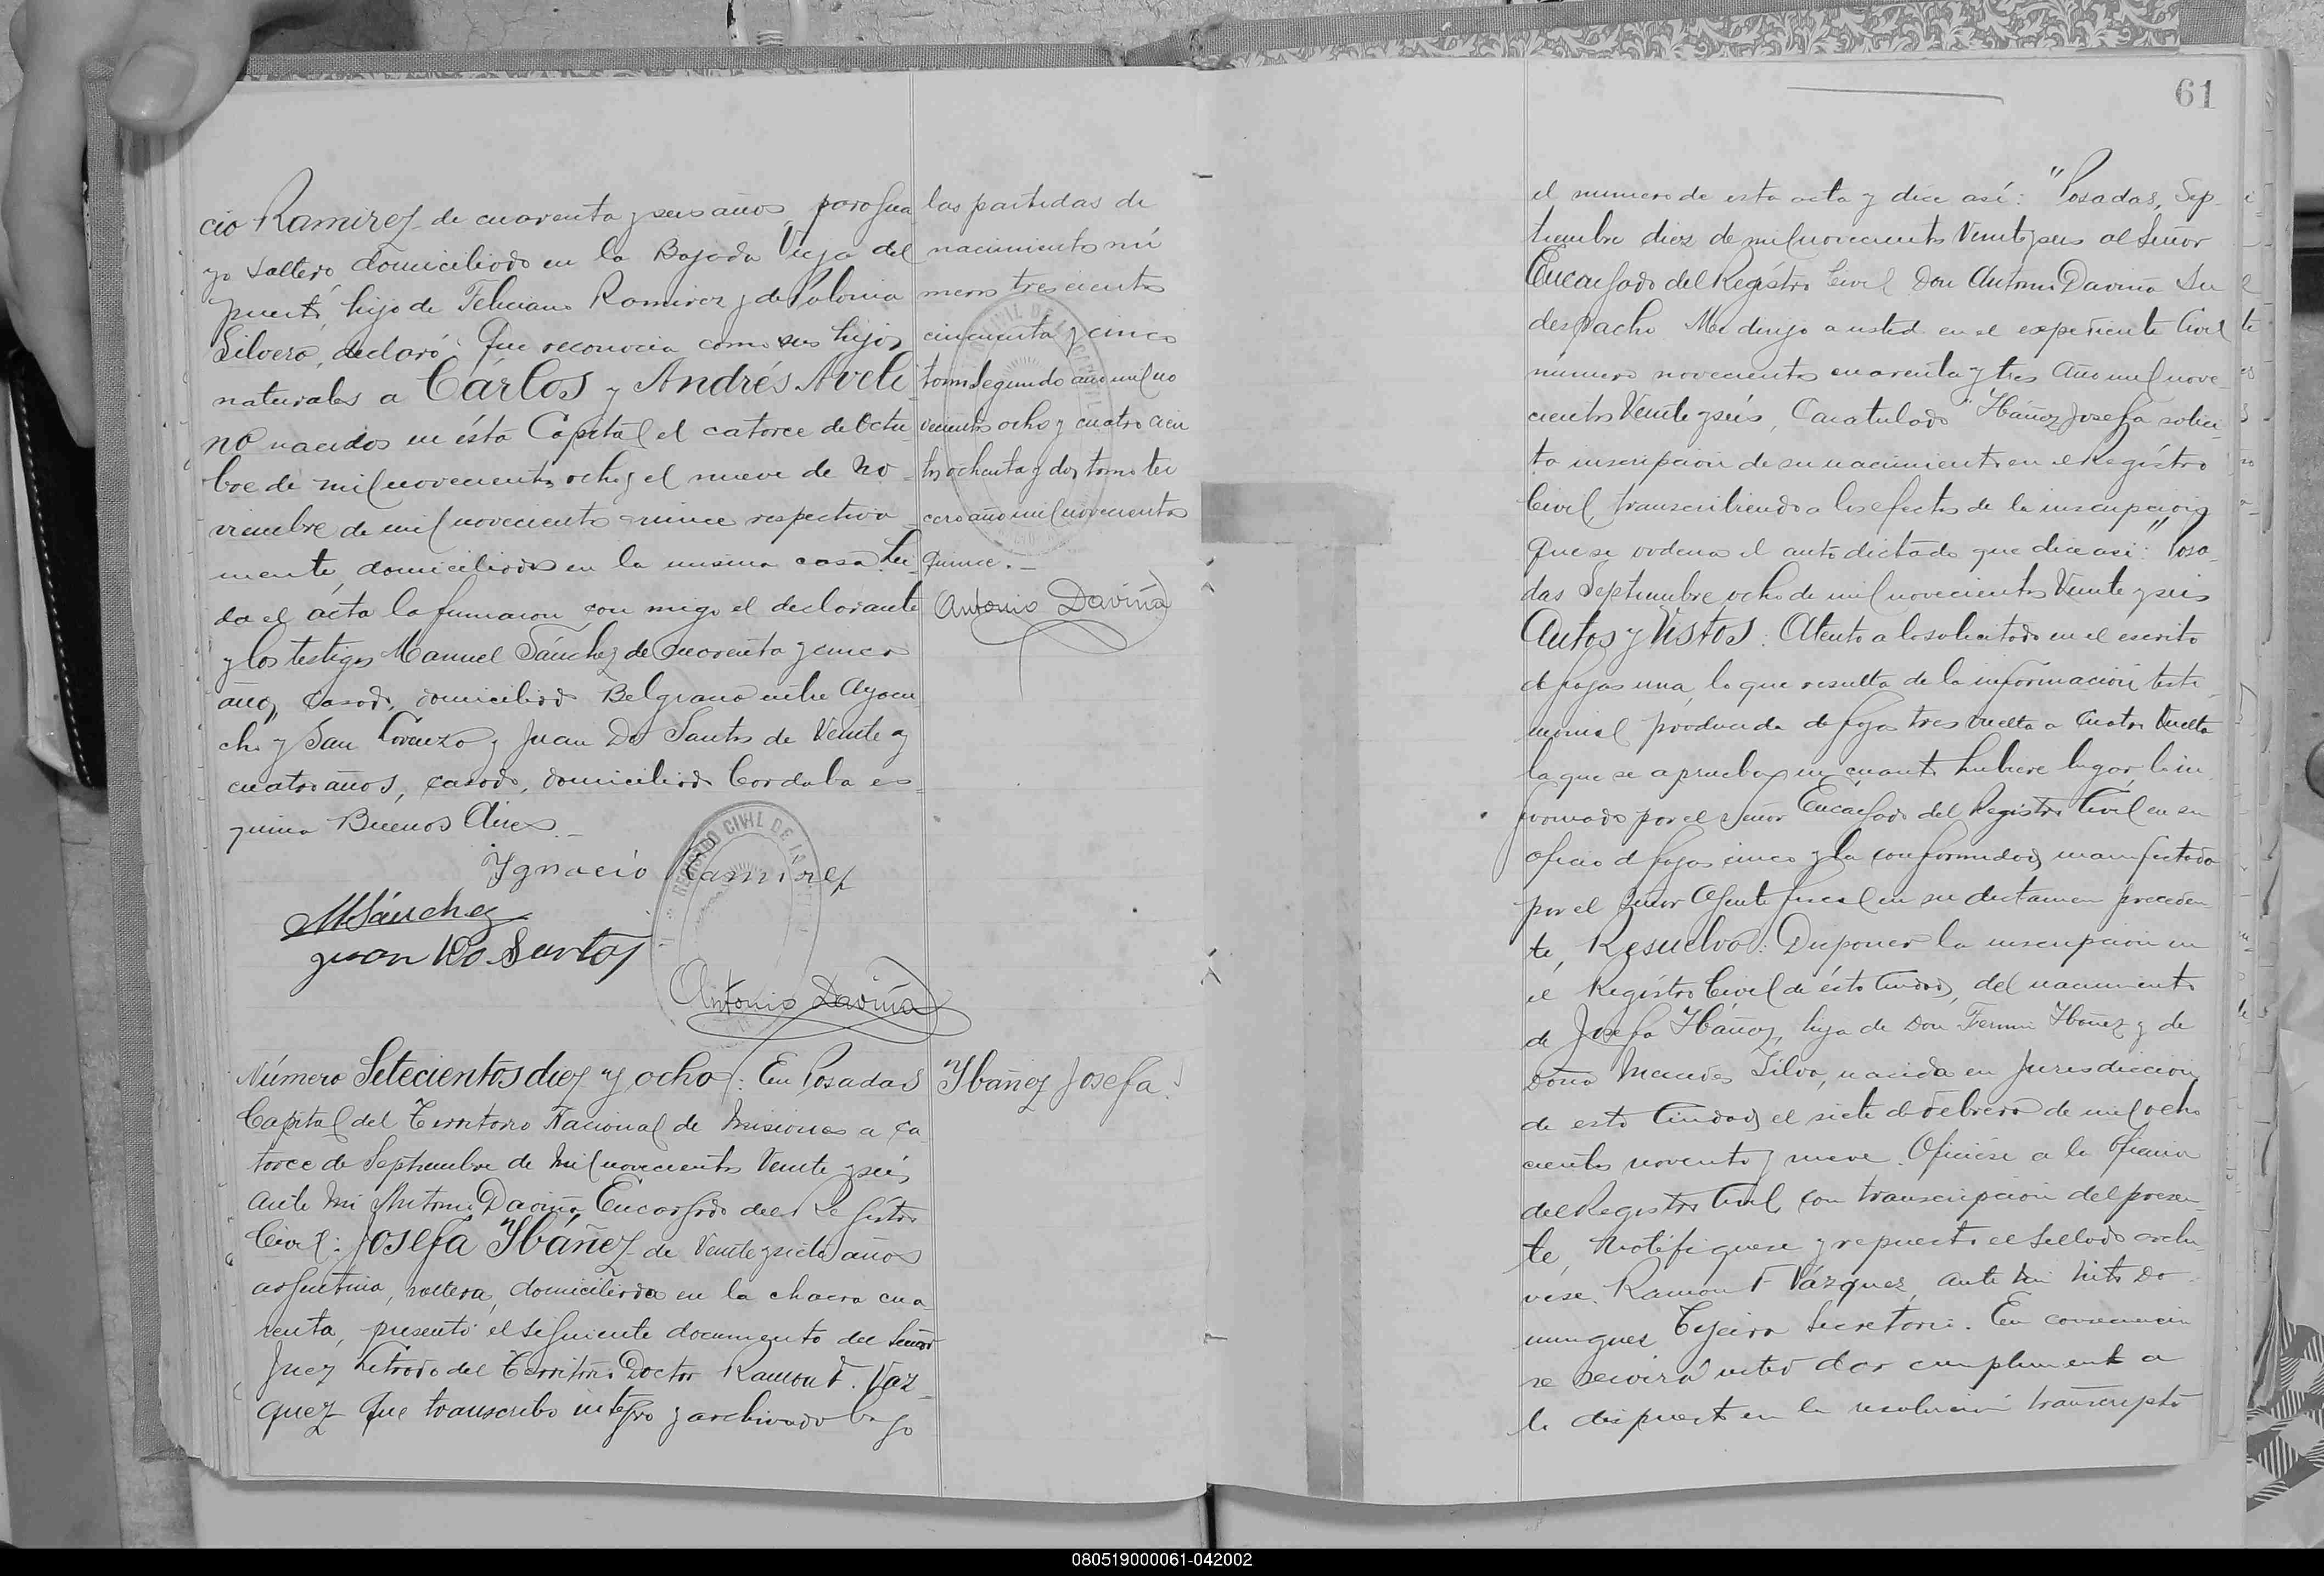 cio Ramirez de cuarenta y seis años, paragua
yo soltero domiciliado en la Bajada Vieja del
puerto, hijo de Feliciano Ramirez y de Polonia
Silvero, declaró: Que reconocia como sus hijos
naturales a Cárlos y Andrés Aveli-
no nacidos en ésta Capital el catorce de Octu-
bre de mil novecientos ocho y el nueve de No-
viembre de mil novecientos quince respectiva-
mente, domiciliados en la misma casa. Lei-
da el acta la firmaron con migo el declarante
y los testigos Manuel Sánchez de cuarenta y cinco
años, casado, domiciliado Belgrano entre Ayacu-
cho y San Lorenzo y Juan Do Santos de Veinte y
cuatro años, casado, domiciliado Cordoba es-
quina Buenos Aires.—
Ygnacio Ramirez
M Sánchez
Juan Do Santos
REGISTRO CIVIL DE
Antonio Daviña
las partidas de
nacimiento nú
mero trescientos
cincuenta y cinco
tomo segundo año mil no
vecientos ocho y cuatrocien
tos ochenta y dos tomo ter
cero año mil novecientos
quince.—
Antonio Daviña
Número Setecientos diez y ocho: En Posadas
Capital del Territorio Nacional de Misiones a ca-
torce de Septiembre de Mil novecientos Veinte y seis
ante mi Antonio Daviña, Encargado del Registro
Civil: Josefa Ybáñez de Veinte y siete años
argentina, soltera, domiciliada en la chacra cua
renta, presentó el siguiente documento del Señor
Juez Letrado del Territorio Doctor Ramon F. Vaz-
quez que transcribo integro y archivado bajo
Ybañez Josefa.
61
el numero de esta acta y dice así: "Posadas, Sep-
tiembre diez de mil novecientos Veinte y seis al Señor
Encargado del Registro Civil Don Antonio Daviña Su
despacho. Me dirijo a usted en el expediente Civil
número novecientos cuarenta y tres Año mil nove-
cientos Veinte y seis, Caratulado "Ibáñez Josefa solici-
ta inscripción de su nacimiento en el Registro
Civil, transcribiendo a los efectos de la inscripción
que se ordena el auto dictado que dice asi: "Posa-
das Septiembre ocho de mil novecientos Veinte y seis
Autos y Vistos: Atento a lo solicitado en el escrito
de fojas una, lo que resulta de la información testi-
monial producida de fojas tres vuelta a cuatro vuelta
la que se aprueba en cuanto hubiere lugar, lo in-
formado por el Señor Encargado del Registro Civil en su
oficio de fojas cinco y la conformidad manifestada
por el Señor Agente fiscal en su dictamen preceden-
te, Resuelvo: Disponer la inscripción en
el Registro Civil de ésta Ciudad, del nacimiento
de Josefa Ibáñez, hija de Don Fermin Ibañez y de
Doña Silva, nacida en Jurisdiccion
de esta Ciudad el siete de Febrero de mil ocho
cientos noventa y nueve. Ofíciese a la Oficina
del Registro Civil con transcripción del presen-
te, Notifiquese y repuesto el sellado archi-
vese. Ramon F Vázquez, ante mi Do-
minguez Teijeiro Secretario. En consecuencia
se servirá usted dar cumplimiento a
lo dispuesto en la resolución transcripta
080519000061-042002